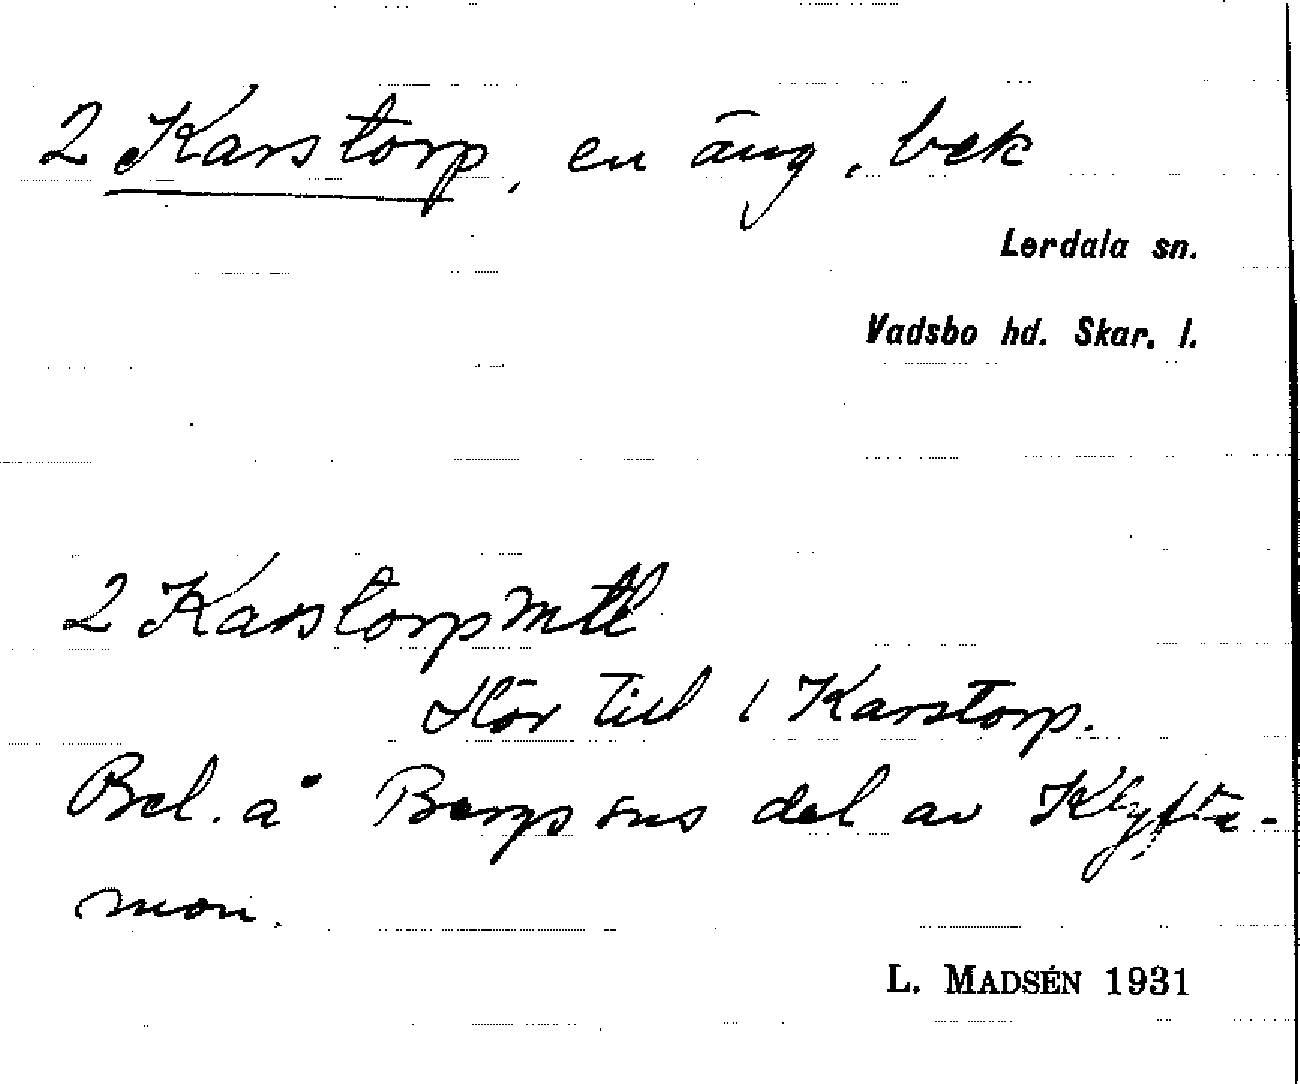 2 Karstorp, en äng, bek
Lerdala sn.
Vadsbo hd. Skar. l.
2 Karstorp mtl
Hör till 1 Karstorp.
Bel. å Bergsens del av Klyfta-
mon.
L. MADSÉN 1931